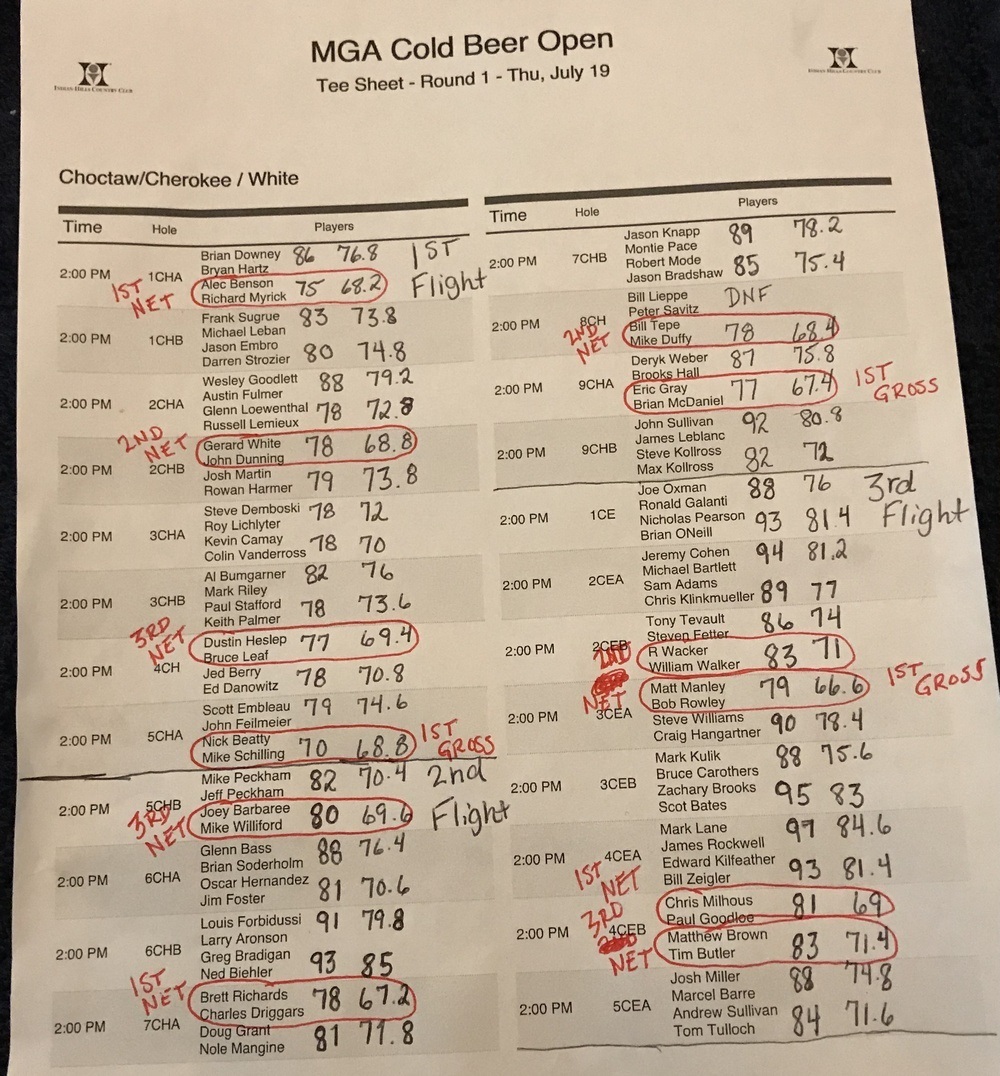 MGA Cold Beer Open
Tee Sheet - Round 1 - Thu, July 19
INDIAN HILLS COUNTRY CLUB
INDIAN HILLS COUNTRY CLUB
Choctaw/Cherokee / White
Time Hole Players
Brian Downey 86 76.8 1ST
Bryan Hartz
2:00 PM 1CHA
Alec Benson 75 68.2 Flight
Richard Myrick
1ST
NET
Frank Sugrue 83 73.8
Michael Leban
2:00 PM 1CHB
Jason Embro 80 74.8
Darren Strozier
Wesley Goodlett 88 79.2
Austin Fulmer
2:00 PM 2CHA
Glenn Loewenthal 78 72.8
Russell Lemieux
2ND
NET
Gerard White 78 68.8
John Dunning
2:00 PM 2CHB
Josh Martin 79 73.8
Rowan Harmer
Steve Demboski 78 72
Roy Lichlyter
2:00 PM 3CHA
Kevin Camay 78 70
Colin Vanderross
Al Bumgarner 82 76
Mark Riley
2:00 PM 3CHB
Paul Stafford 78 73.6
Keith Palmer
3RD
NET
Dustin Heslep 77 69.4
Bruce Leaf
2:00 PM 4CH
Jed Berry 78 70.8
Ed Danowitz
Scott Embleau 79 74.6
John Feilmeier
2:00 PM 5CHA
Nick Beatty 70 68.8 1ST
Mike Schilling GROSS
Mike Peckham 82 70.4 2nd
Jeff Peckham
2:00 PM 5CHB
Joey Barbaree 80 69.6 Flight
Mike Williford
3RD
NET
Glenn Bass 88 76.4
Brian Soderholm
2:00 PM 6CHA
Oscar Hernandez 81 70.6
Jim Foster
Louis Forbidussi 91 79.8
Larry Aronson
2:00 PM 6CHB
Greg Bradigan 93 85
Ned Biehler
1ST
NET
Brett Richards 78 67.2
Charles Driggars
2:00 PM 7CHA
Doug Grant 81 71.8
Nole Mangine
Time Hole Players
Jason Knapp 89 78.2
Montie Pace
2:00 PM 7CHB
Robert Mode 85 75.4
Jason Bradshaw
Bill Lieppe DNF
Peter Savitz
2:00 PM 8CH
2ND
NET
Bill Tepe 78 68.4
Mike Duffy
Deryk Weber 87 75.8
Brooks Hall
2:00 PM 9CHA
Eric Gray 77 67.4 1ST
Brian McDaniel GROSS
John Sullivan 92 80.8
James Leblanc
2:00 PM 9CHB
Steve Kollross 82 72
Max Kollross
Joe Oxman 88 76 3rd
Ronald Galanti
2:00 PM 1CE
Nicholas Pearson 93 81.4 Flight
Brian ONeill
Jeremy Cohen 94 81.2
Michael Bartlett
2:00 PM 2CEA
Sam Adams 89 77
Chris Klinkmueller
Tony Tevault 86 74
Steven Fetter
2:00 PM 2CEB
2ND
NET
R Wacker 83 71
William Walker
Matt Manley 79 66.6 1ST
Bob Rowley GROSS
2:00 PM 3CEA
Steve Williams 90 78.4
Craig Hangartner
Mark Kulik 88 75.6
Bruce Carothers
2:00 PM 3CEB
Zachary Brooks 95 83
Scot Bates
Mark Lane 97 84.6
James Rockwell
2:00 PM 4CEA
Edward Kilfeather 93 81.4
Bill Zeigler
1ST
NET
Chris Milhous 81 69
Paul Goodloe
2:00 PM 4CEB
3RD
NET
Matthew Brown 83 71.4
Tim Butler
Josh Miller 88 74.8
Marcel Barre
2:00 PM 5CEA
Andrew Sullivan 84 71.6
Tom Tulloch